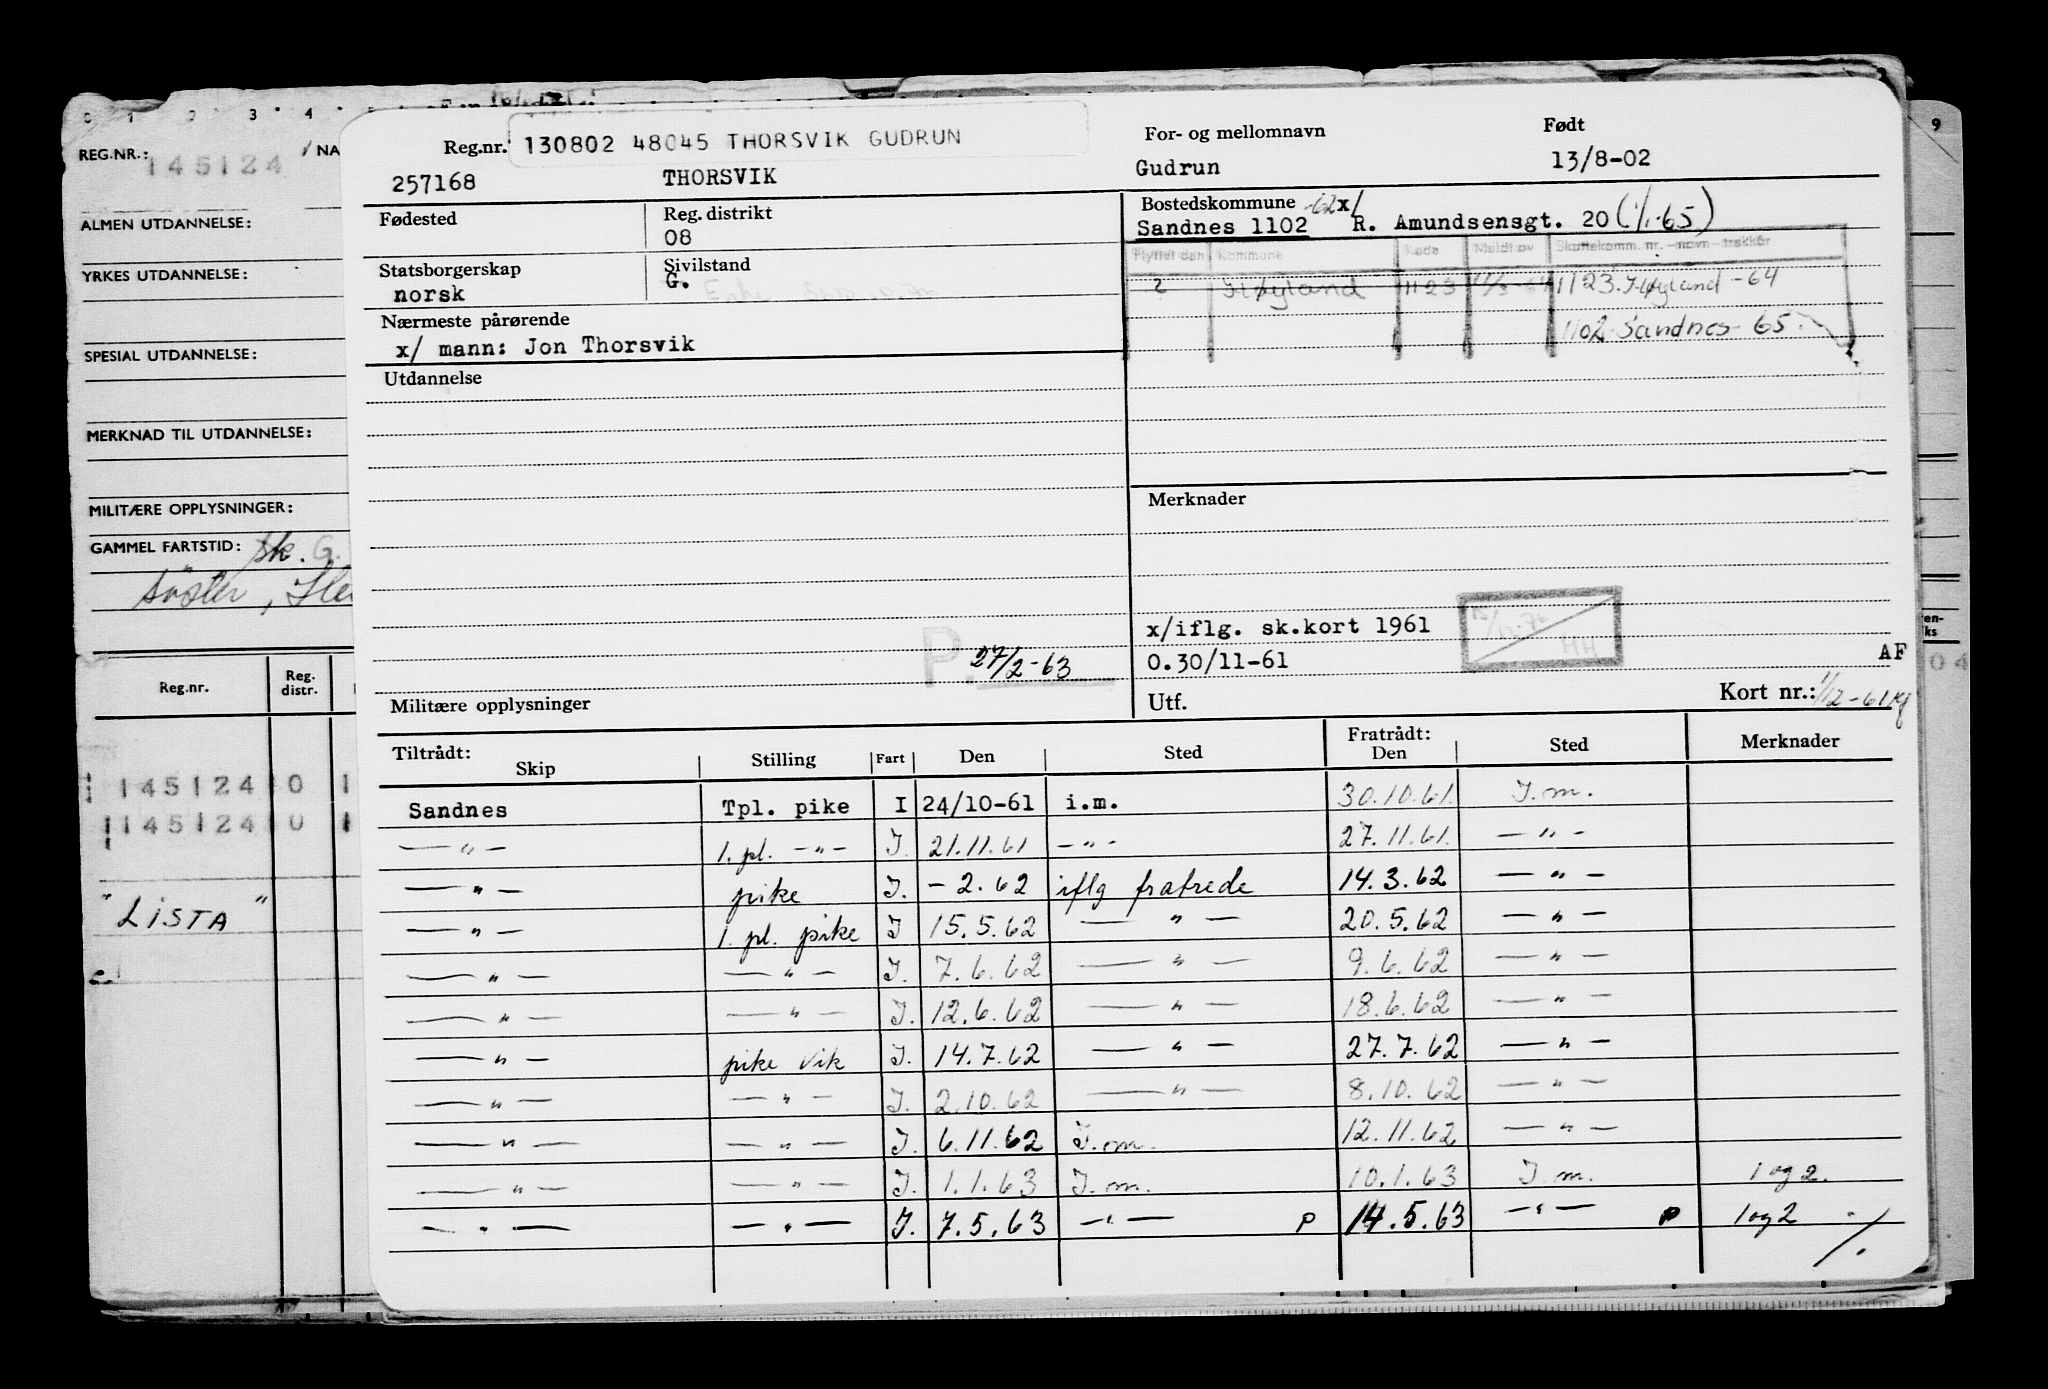 0 1 2 3 4
REG.NR.: 145124 NA
ALMEN UTDANNELSE:
YRKES UTDANNELSE:
SPESIAL UTDANNELSE:
MERKNAD TIL UTDANNELSE:
MILITÆRE OPPLYSNINGER:
GAMMEL FARTSTID: sk. G.
söster,
Reg.nr. Reg. distr.
145124 0 1
145124 0
"LISTA"
9
04
Reg.nr. 130802 48045 THORSVIK GUDRUN
257168 THORSVIK
For- og mellomnavn
Gudrun
Født
13/8-02
Fødested
Reg. distrikt
08
Statsborgerskap
norsk
Sivilstand
G.
Nærmeste pårørende
x/ mann: Jon Thorsvik
Utdannelse
P. 27/2-63
Militære opplysninger
Bostedskommune -62 x/
Sandnes 1102 R. Amundsensgt. 20 (1/1-65)
Flyttet den Kommune Kode Meldt av Skattekomm. nr. - navn - trekkår
2 Høyland 1123 1123 Høyland -64
1102 Sandnes - 65
Merknader
x/iflg. sk.kort 1961
0.30/11-61
HH
AF
Utf.
Kort nr.: 1/12-61
Tiltrådt: Skip Stilling Fart Den Sted Fratrådt: Den Sted Merknader
Sandnes Tpl. pike I 24/10-61 i.m. 30.10.61. I.m.
—"— 1. pl. —"— I. 21.11.61 —"— 27.11.61. —"—
—"— pike I. - 2. 62 iflg fratrede 14.3.62 —"—
—"— 1. pl. pike I 15.5.62 —"— 20.5.62 —"—
—"— —"— I. 7.6.62 —"— 9.6.62 —"—
—"— —"— I. 12.6.62 —"— 18.6.62 —"—
—"— pike vik I. 14.7.62 —"— 27.7.62 —"—
—"— —"— I. 2.10.62 —"— 8.10.62 —"—
—"— —"— I. 6.11.62 I.m. 12.11.62 —"—
—"— —"— I. 1.1.63 I.m. 10.1.63 I.m. 1 og 2.
—"— —"— I. 7.5.63 —"— P 14.5.63 —"— P 1 og 2 ./.